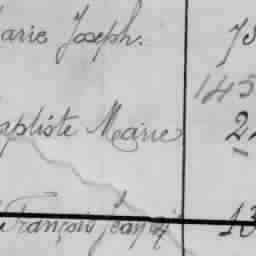 arie Joseph. 78
145
aptiste Marie 2
François Jean 13